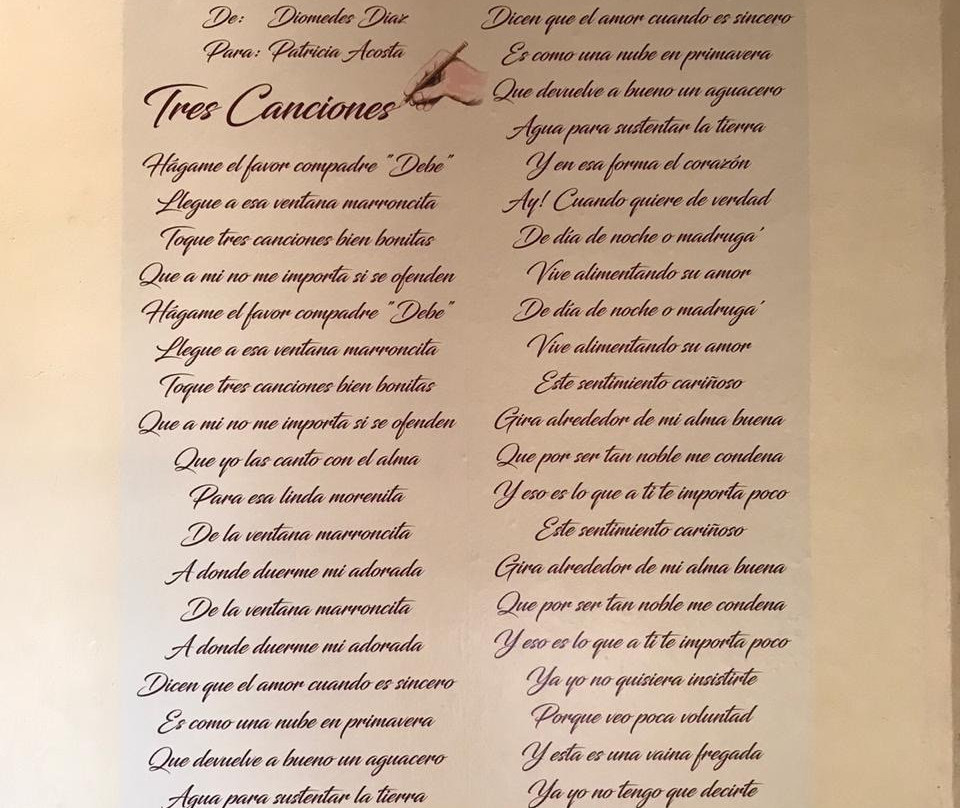 De: Diomedes Diaz
Para: Patricia Acosta
Tres Canciones
Hágame el favor compadre "Debe"
Llegue a esa ventana marroncita
Toque tres canciones bien bonitas
Que a mi no me importa si se ofenden
Hágame el favor compadre "Debe"
Llegue a esa ventana marroncita
Toque tres canciones bien bonitas
Que a mi no me importa si se ofenden
Que yo las canto con el alma
Para esa linda morenita
De la ventana marroncita
A donde duerme mi adorada
De la ventana marroncita
A donde duerme mi adorada
Dicen que el amor cuando es sincero
Es como una nube en primavera
Que devuelve a bueno un aguacero
Agua para sustentar la tierra
Dicen que el amor cuando es sincero
Es como una nube en primavera
Que devuelve a bueno un aguacero
Agua para sustentar la tierra
Y en esa forma el corazón
Ay! Cuando quiere de verdad
De día de noche o madruga'
Vive alimentando su amor
De día de noche o madruga'
Vive alimentando su amor
Este sentimiento cariñoso
Gira alrededor de mi alma buena
Que por ser tan noble me condena
Y eso es lo que a ti te importa poco
Este sentimiento cariñoso
Gira alrededor de mi alma buena
Que por ser tan noble me condena
Y eso es lo que a ti te importa poco
Ya yo no quisiera insistirte
Porque veo poca voluntad
Y esta es una vaina fregada
Ya yo no tengo que decirte